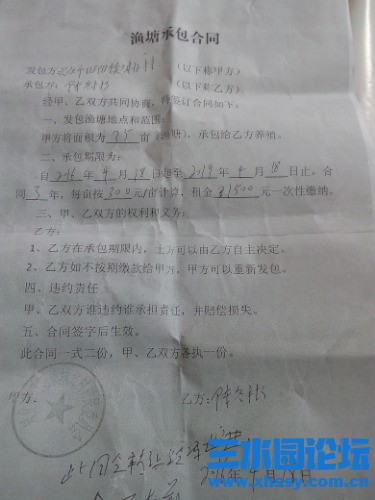 渔塘承包合同
发包方 (以下称甲方)
承包方: (以下称乙方)
经甲、乙双方共同协商,签订合同如下:
一、发包渔塘地点和范围:
甲方将面积为 35 亩(渔塘),承包给乙方养殖。
二、承包期限为:
自 2016 年 4 月 18 日起至 2019 年 4 月 18 日止。合
同 3 年,每亩按 300 元/亩计算,租金 31500 元一次性缴纳。
三、甲、乙双方的权利和义务:
乙方:
1、乙方在承包期限内,土方可以由乙方自主决定。
2、乙方如不按期缴款给甲方,甲方可以重新发包。
四、违约责任:
甲、乙双方谁违约谁承担责任,并赔偿损失。
五、合同签字后生效。
此合同一式二份,甲、乙双方各执一份。
甲方: 乙方:
此合同转让给
2016年4月18日
三水园论坛
www.xhssy.com.cn